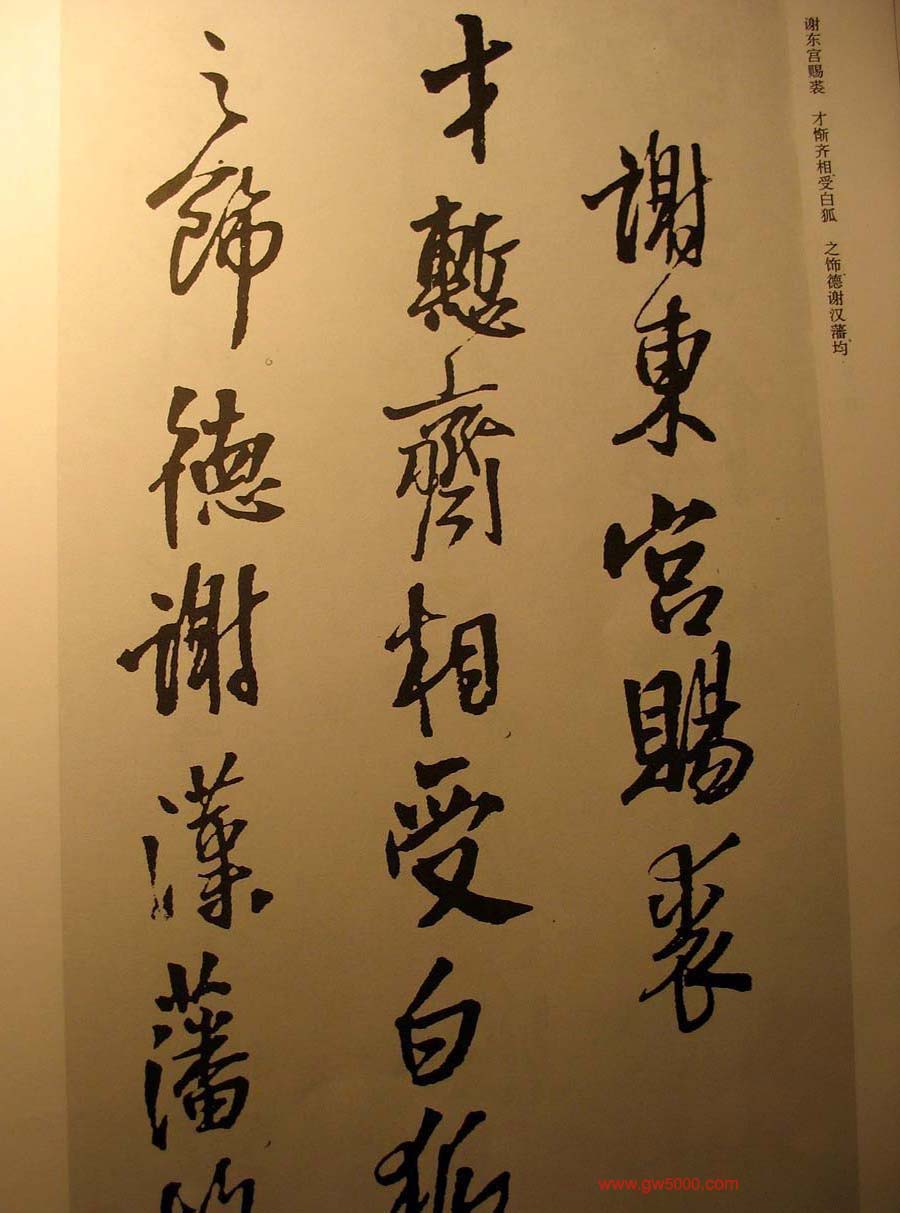 谢东宫赐裘 才惭齐相受白狐 之饰德谢汉藩均
謝東宮賜裘
才慙齊相受白狐
之飾德謝漢藩均
www.gw5000.com